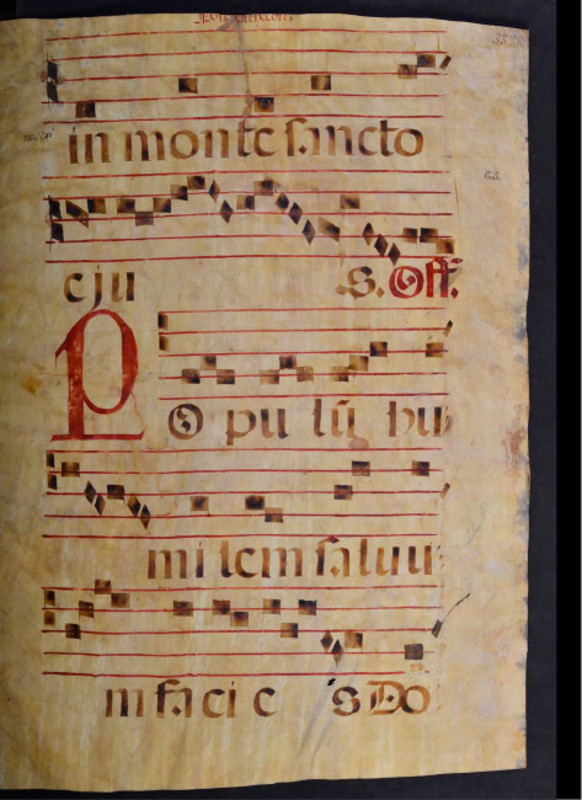 in monte sancto
eju s. Off.
PO pu lū hu
mi lem saluu
m faci e s Do